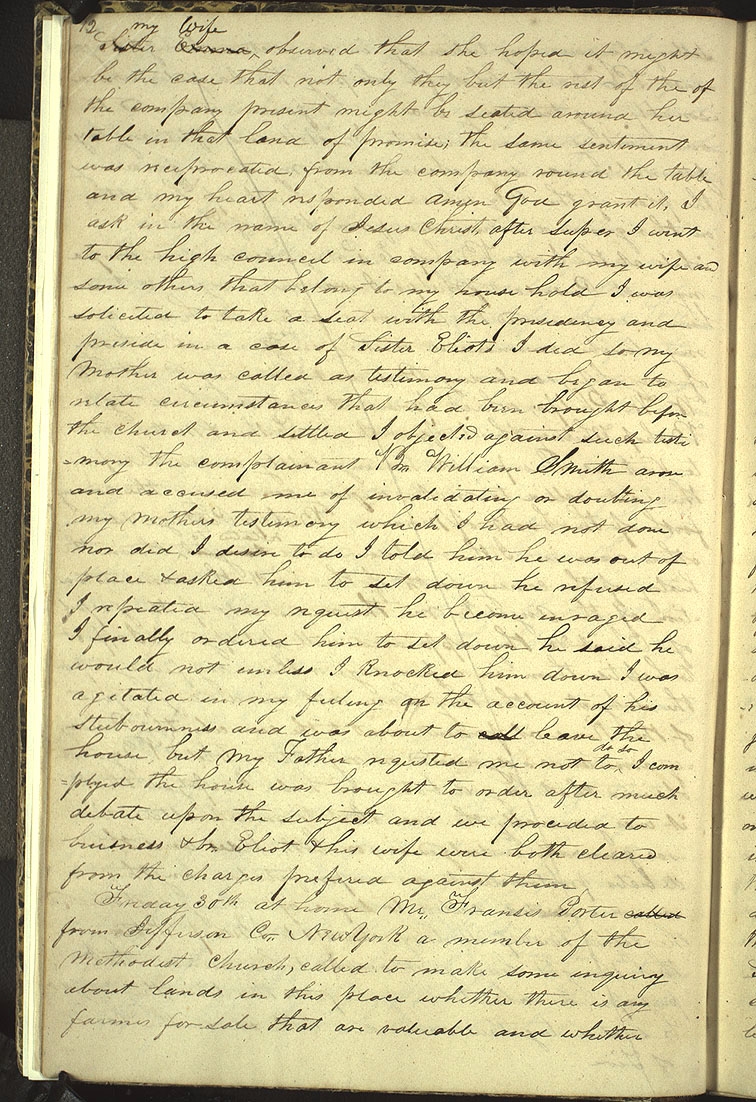 12 my wife
Sister Emma, observed that she hoped it might
be the case that not only they but the rest of the of
the company present might be seated around her
table in that land of promise; the same sentiment
was reciprocated, from the company round the table
and my heart responded amen God grant it, I
ask in the name of Jesus Christ, after super I went
to the high council in company with my wife and
some others that belong to my house hold I was
solicited to take a seat with the presidency and
preside in a case of Sister Eliots I did so my
Mother was called as testimony and began to
relate circumstances that had been brought before
the church and settled I objected against such testi
=mony the complainant Br. William Smith arose
and accused me of invalidating or doubting
my mothers testimony which I had not done
nor did I desire to do I told him he was out of
place & asked him to set down he refused
I repeated my request he become inraged
I finally ordered him to set down he said he
would not unless I knocked him down I was
agitated in my feeling on the account of his
stubournness and was about to call leave the
house, but my Father requested me not to do so, I com
=plyed the house was brought to order after much
debate upon the subject and we proceded to
buisness & br. Eliot & his wife were both cleared
from the charges prefered against them
Friday 30th at home Mr. Fransis Porter called
from Jefferson Co. New York a member of the
Methodist Church, called to make some inquiry
about lands in this place whether there is any
farmes for sale that are valuable and whether